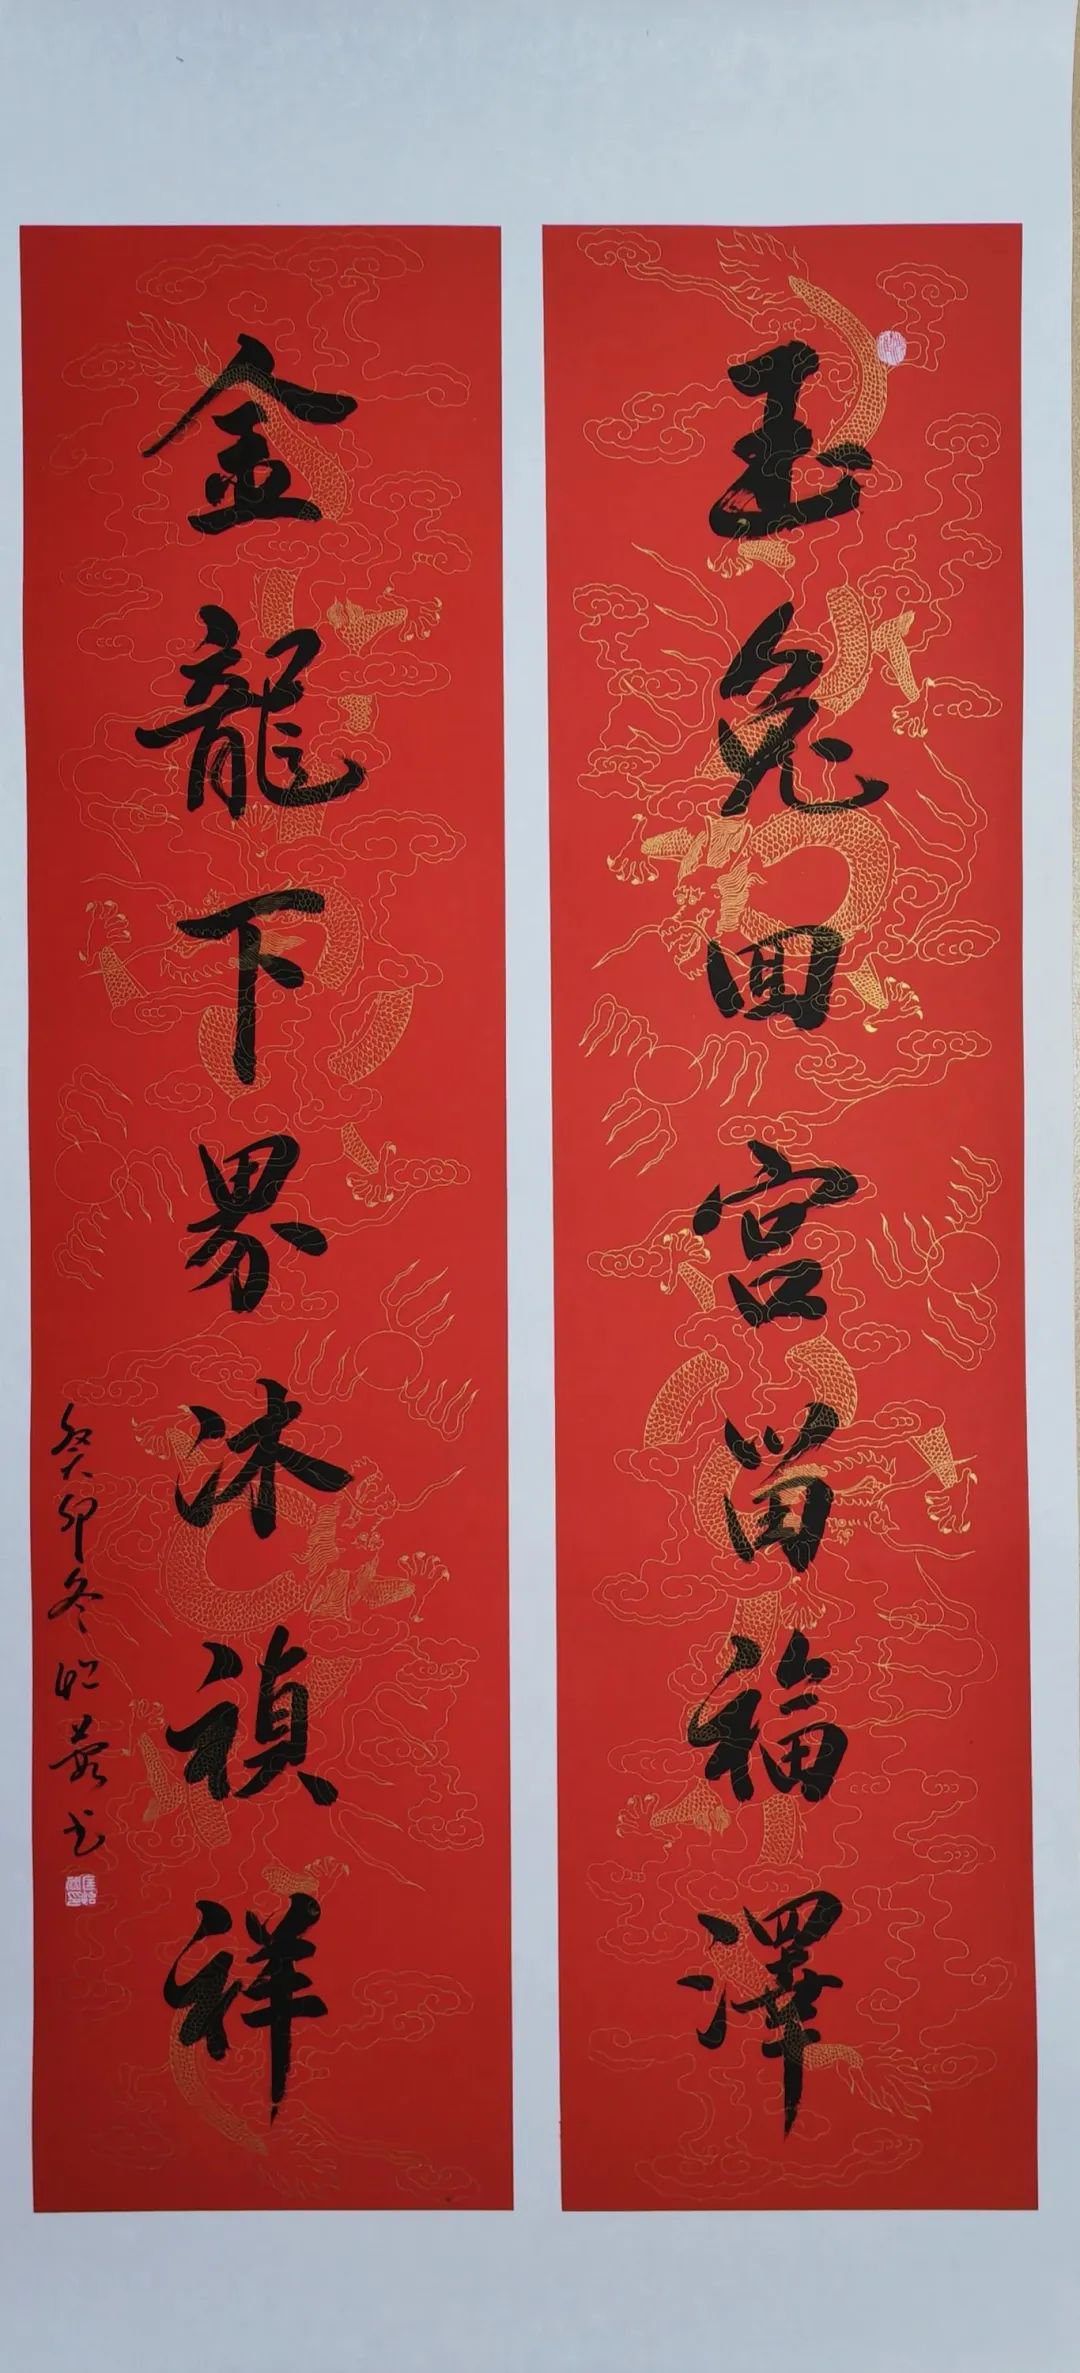 玉兔回宫留福澤
金龍下界沐禎祥
癸卯冬